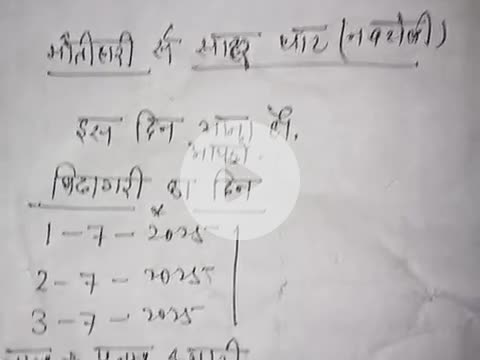 मोतीहारी से साहर घाट (नवटोली)
इस दिन आना है।
आपको
बिदागरी का दिन
1-7-2025
2-7-2025
3-7-2025